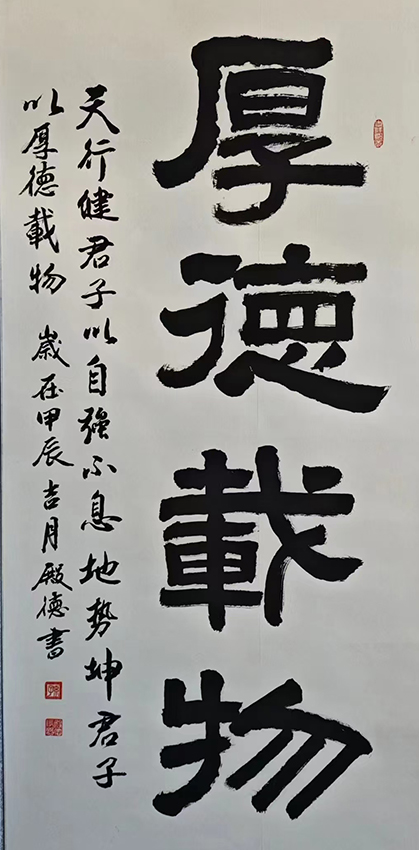 厚德載物
天行健君子以自强不息地勢坤君子
以厚德載物 歲在甲辰吉月殿德書